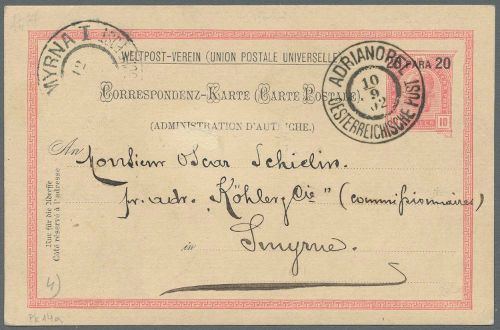 WELTPOST-VEREIN (UNION POSTALE UNIVERSELLE)
PARA 20
CORRESPONDENZ-KARTE (CARTE POSTALE)
(ADMINISTRATION D'AUTRICHE.)
ADRIANOPEL
10
OESTERREICHISCHE POST
MYRNA I
12
10
An
Monsieur Oscar Schielin
pr. adr. "Köhler & Cie" (commissionnaires)
in
Smyrne
Nur für die Adresse
Côté réservé à l'adresse
4)
PK 14a